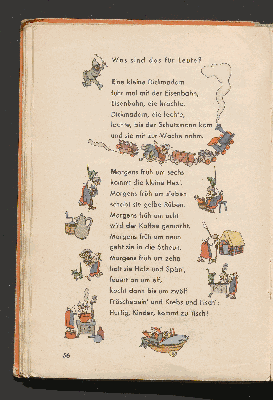 Was sind das für Leute?
Eine kleine Dickmadam
fuhr mal mit der Eisenbahn,
Eisenbahn, die krachte,
Dickmadam, die lachte,
lachte, bis der Schutzmann kam
und sie mit zur Wache nahm.
Morgens früh um sechs
kommt die kleine Hex!
Morgens früh um sieben
schabt sie gelbe Rüben.
Morgens früh um acht
wird der Kaffee gemacht.
Morgens früh um neun
geht sie in die Scheun.
Morgens früh um zehn
holt sie Holz und Spän,
feuert an um elf,
kocht dann bis um zwölf
Fröschebein' und Krebs und Fisch:
Hurtig, Kinder, kommt zu Tisch!
56